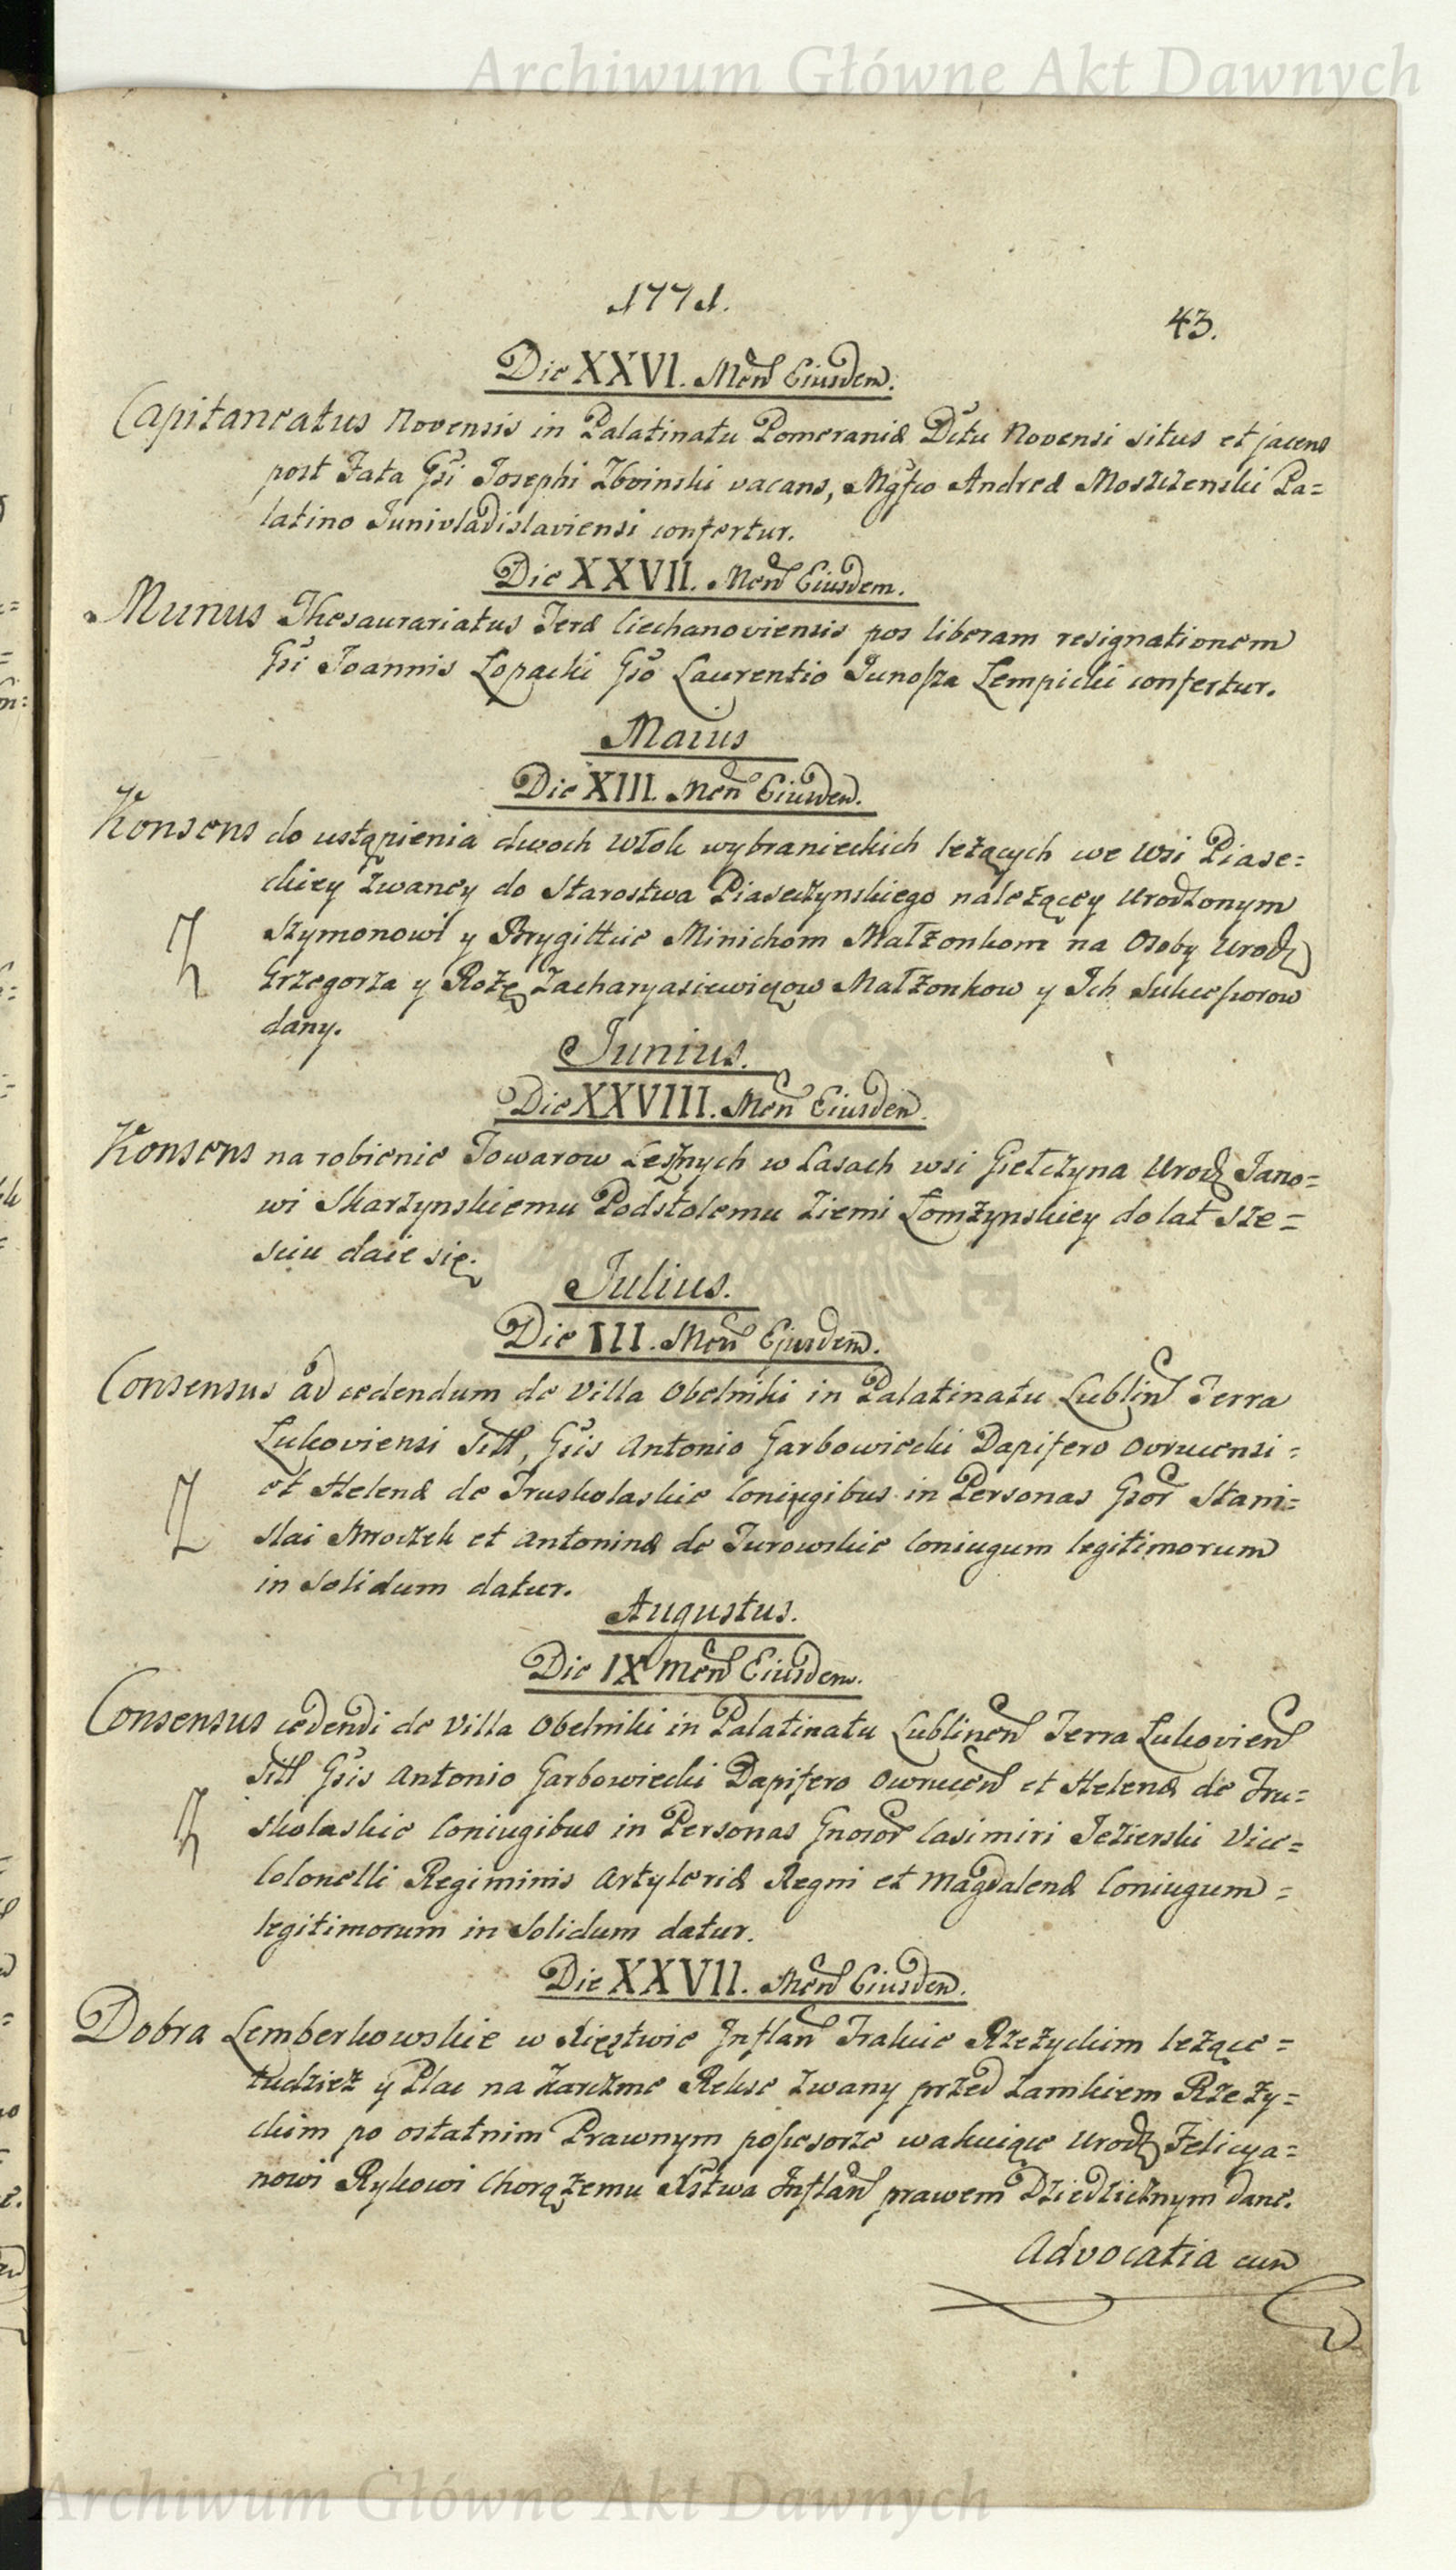 Archiwum Główne Akt Dawnych
1771.
43.
Die XXVI. Men Eiusdem.
Capitaneatus Novensis in Palatinatu Pomeraniæ Dctu Novensi situs et jacens
post Fata Gsi Josephi Zboinski vacans, Mgfco Andreæ Moszczenski Pa=
latino Junivladislaviensi confertur.
Die XXVII. Men Eiusdem.
Munus Thesaurariatus Terræ Ciechanoviensis pos liberam resignationem
Gsi Joannis Łopacki Gso Laurentio Junosza Lempicki confertur.
Maius
Die XIII. Men Eiusdem.
Konsens do ustąpienia dwoch Włok wybranieckich leżących we Wsi Piase=
ckiey zwaney do Starostwa Piaseczynskiego należącey Urodzonym
Szymonowi y Brygittcie Minichom Małżonkom na Osoby Urodz
Grzegorza y Rożę Zacharyasiewiczow Małżonkow y Ich Sukcessorow
dany.
Junius.
Die XXVIII. Men Eiusdem.
Konsens na robienie Towarow Leśnych w Lasach wsi Giełczyna Urodz Jano=
wi Skarzynskiemu Podstolemu Ziemi Łomżynskiey do lat sze=
sciu daie się.
Julius.
Die III. Men Ejusdem.
Consensus ad cedendum de Villa Obelniki in Palatinatu Lublin Terra
Lukoviensi Sitt, Gsis Antonio Garbowiecki Dapifero Ovrucensi =
et Helenæ de Truskolaskie Coniugibus in Personas Gsor Stani=
slai Mroczek et Antoninæ de Turowskie Coniugum legitimorum
in Solidum datur.
Augustus.
Die IX Men Eiusdem.
Consensus cedendi de Villa Obelniki in Palatinatu Lublinen Terra Lukovien
Sitt Gsis Antonio Garbowiecki Dapifero Owrucen et Helenæ de Tru=
skolaskie Coniugibus in Personas Gnosor Casimiri Jezierski Vice=
Colonelli Regiminis Artyleriæ Regni et Magdalenæ Coniugum =
legitimorum in Solidum datur.
Die XXVII. Men Eiusdem.
Dobra Lemberkowskie w Xięstwie Inflan Trakcie Rzeżyckim leżące =
tudzież y Plac na Karczmę Rekse zwany przed Zamkiem Rzeży=
ckim po ostatnim Prawnym possesorze wakuiące Urodz Felicya=
nowi Rykowi Chorążemu Xstwa Inflan prawem Dziedzicznym dane.
Advocatia cum
Archiwum Główne Akt Dawnych